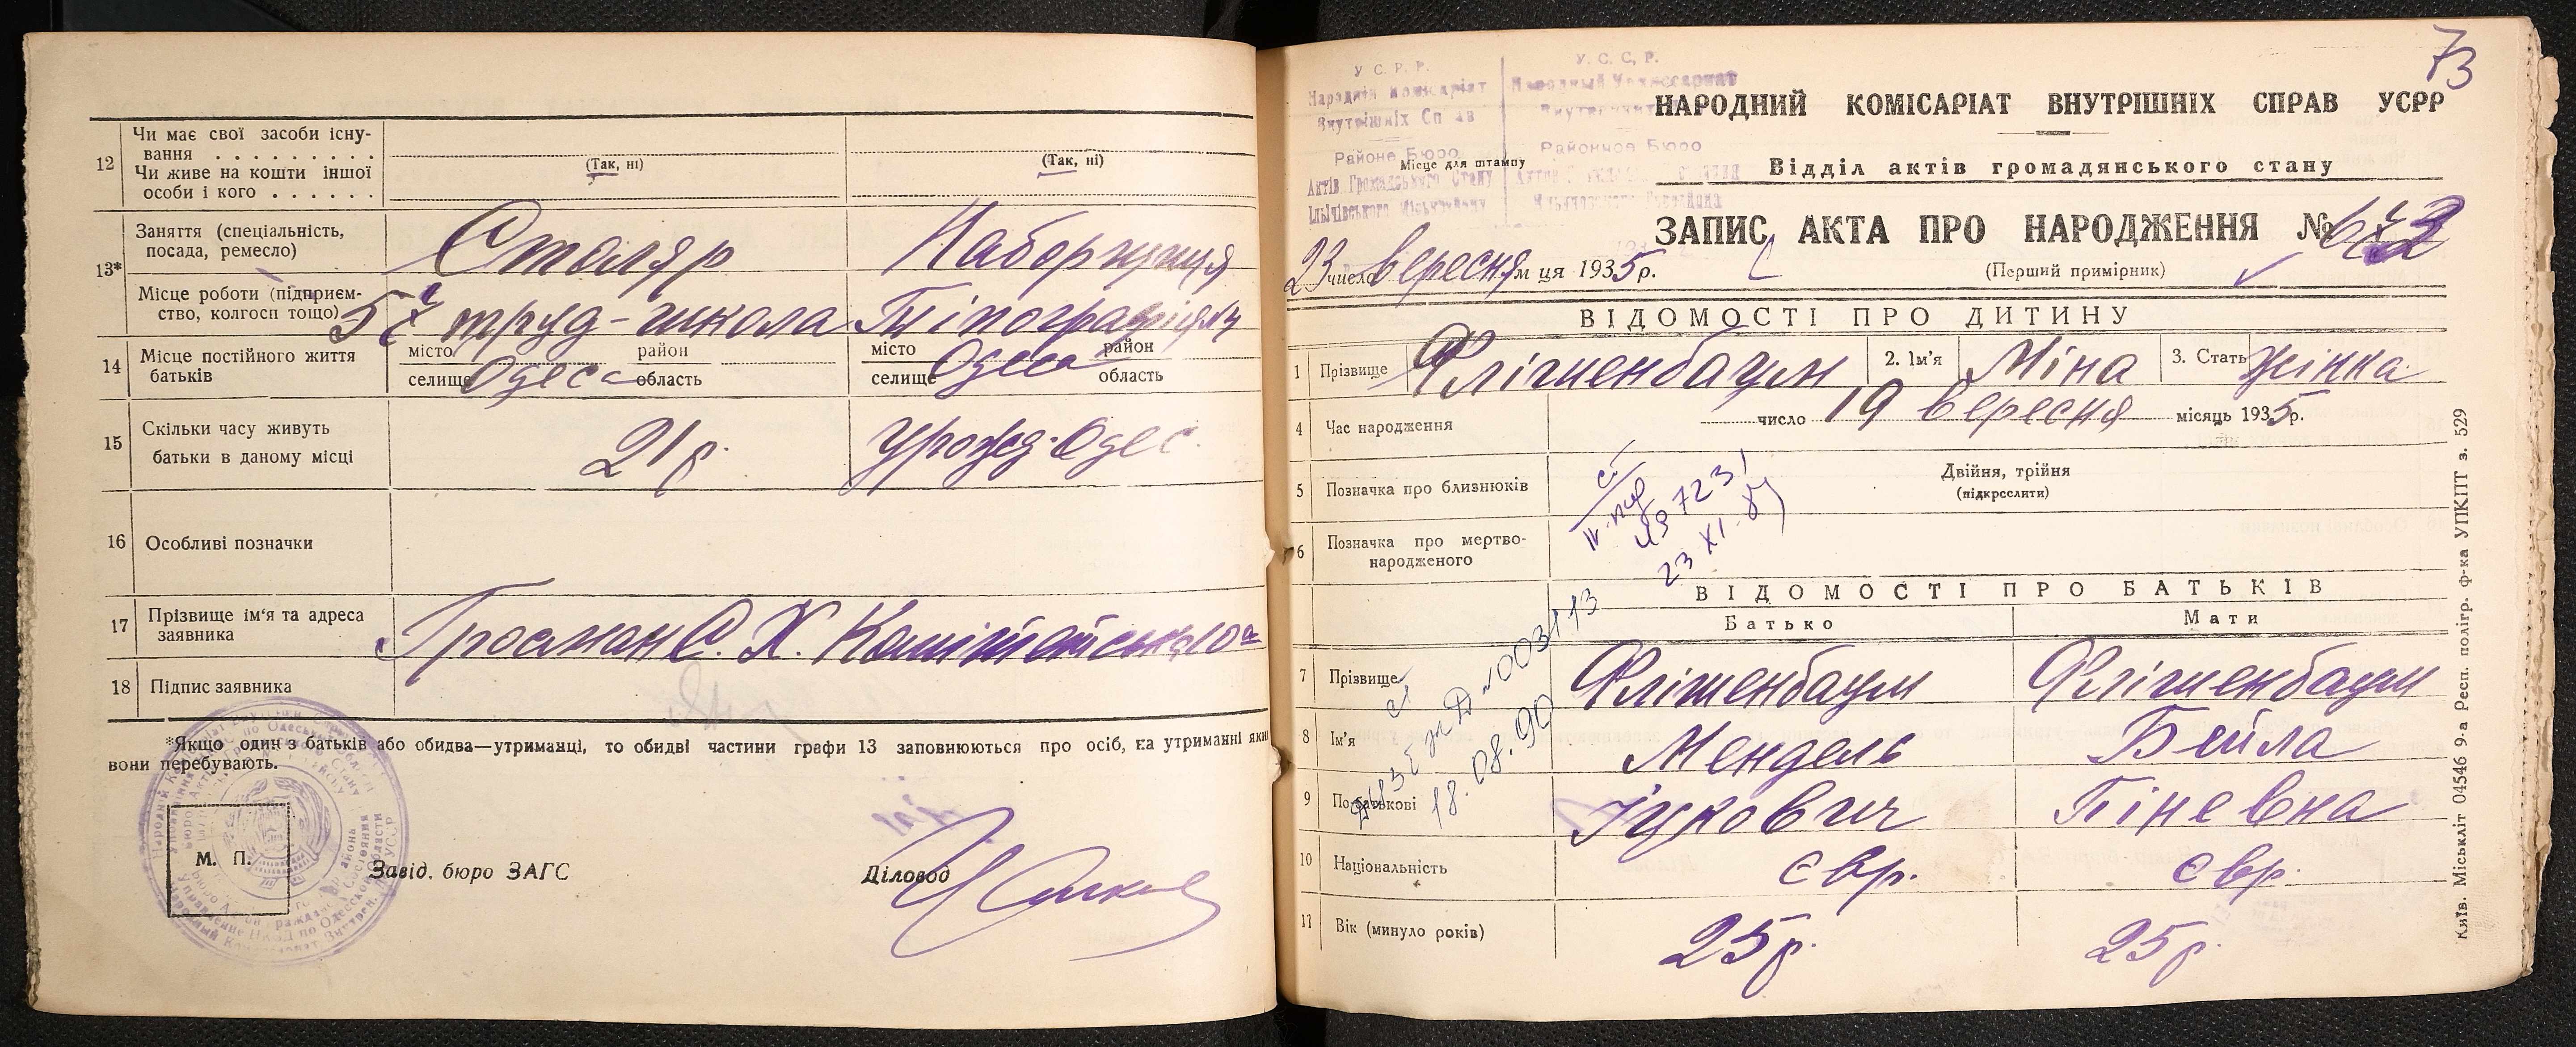 12 Чи має свої засоби існу-
вання . . . . . . . . .
Чи живе на кошти іншої
особи і кого . . . . . .
(Так, ні) (Так, ні)
13* Заняття (спеціальність,
посада, ремесло)
Столяр Наборщиця
Місце роботи (підприєм-
ство, колгосп тощо)
труд-школа
14 Місце постійного життя
батьків
місто район місто район
Одеса Одеса
селище область селище область
15 Скільки часу живуть
батьки в даному місці
21 р. урожд. Одес.
16 Особливі позначки
17 Прізвище ім'я та адреса
заявника
Гросман С. Х.
18 Підпис заявника
*Якщо один з батьків або обидва—утриманці, то обидві частини графи 13 заповнюються про осіб, на утриманні яких
вони перебувають.
М. П.
Завід. бюро ЗАГС Діловод
73
У. С. Р. Р. У. С. С. Р.
Народній Комісаріат Народный Комиссариат
Внутрішніх Справ
Районе Бюро Районное Бюро
Місце для штампу
Актів Громадського Стану
НАРОДНИЙ КОМІСАРІАТ ВНУТРІШНІХ СПРАВ УСРР
Відділ актів громадянського стану
ЗАПИС АКТА ПРО НАРОДЖЕННЯ №
23 число вересня м ця 1935р. (Перший примірник)
ВІДОМОСТІ ПРО ДИТИНУ
1 Прізвище Флішенбаум 2. Ім'я Міна 3. Стать жінка
4 Час народження число 19 вересня місяць 1935р.
5 Позначка про близнюків Двійня, трійня
(підкреслити)
6 Позначка про мертво-
народженого
23 XI
ВІДОМОСТІ ПРО БАТЬКІВ
Батько Мати
7 Прізвище Флішенбаум Флішенбаум
8 Ім'я Мендель Бейла
18.08.90
9 По батькові Іцкович Піневна
10 Національність євр. євр.
11 Вік (минуло років) 25р. 25р.
Київ. Міськліт 04546 9-а Респ. полігр. ф-ка УПКПТ з. 529